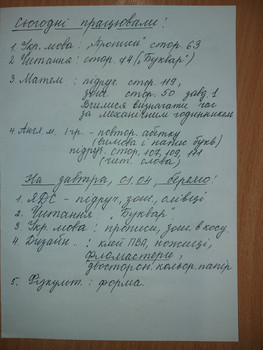 Сьогодні працювали:
1. Укр. мова: „Прописи" стор. 63
2 Читання: стор. 44 („Буквар")
3. Матем: підруч. стор. 119,
зош. стор. 50 завд. 1
Вчимося визначати час
за механічним годинником
4. Англ. м. 1 гр. - повтор. абетку
(вимова і напис букв)
підруч. стор. 107, 109, 111
(чит. слова)
На завтра, 01.04, беремо:
1. ЯДС - підруч, зош, олівці
2. Читання „Буквар"
3. Укр. мова: прописи, зош. в косу.
4. Дизайн.: клей ПВА, ножиці,
фломастери,
двосторон. кольор. папір
5. Фізкульт.: форма.